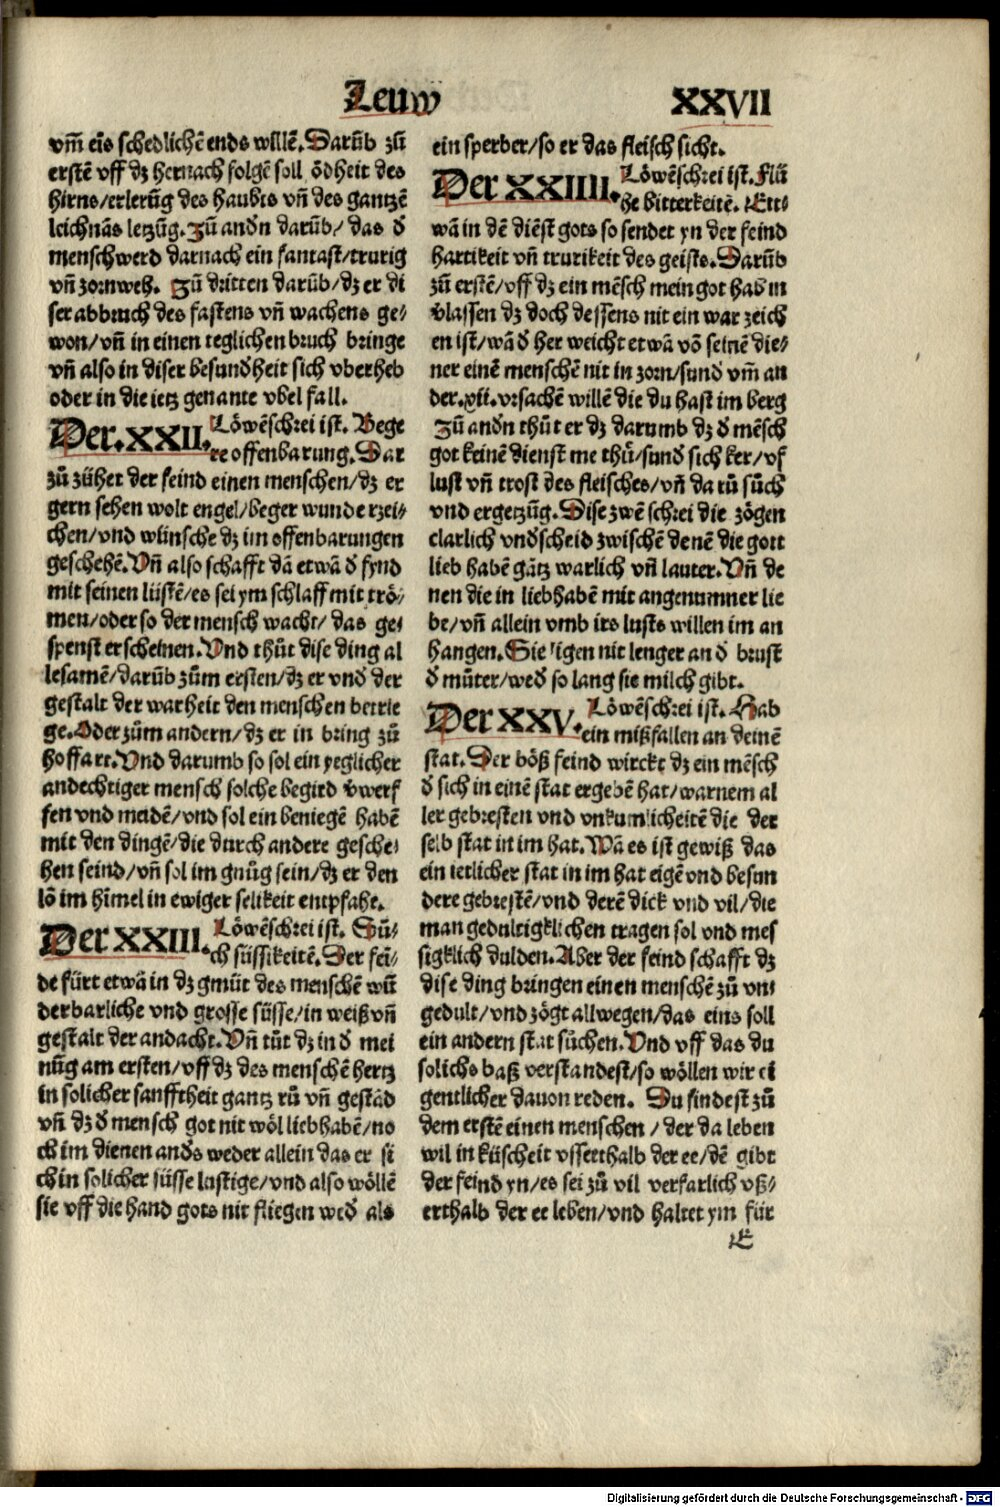 Leuw
XXVII
vm̃ eīs schedlichē ends willē. Darūb zů
erstē vff dz hernach folgē soll ődheit des
hirns/erlerūg des haubts vñ des gantzē
leichnās letzūg. Zů andn̄ darūb/ das đ
mensch werd darnach ein fantast/trurig
vñ zornweh. Zů dritten darūb/dz er di
ser abbruch des fastens vñ wachens ge⸗
won/vñ in einen teglichen bruch bringe
vñ also in diser besundheit sich vberheb
oder in die ietz genante vbel fall.
Der.XXII. Löwēschrei ist. Bege
re offenbarung. Dar
zů zühet der feind einen menschen/dz er
gern sehen wolt engel/beger wunderzei⸗
chen/vnd wünsche dz im offenbarungen
geschehē. Vñ also schafft dā etwā đ fynd
mit seinen lüstē/es sei ym schlaff mit trö⸗
men/oder so der mensch wacht/ das ge⸗
spenst erscheinen. Vnd thůt dise ding al
lesamē/darūb zům ersten/dz er vnd der
gestalt der warheit den menschen betrie
ge. Oder zům andern/dz er in bring zů
hoffart. Vnd darumb so sol ein yeglicher
andechtiger mensch solche begird v̄werf
fen vnd meidē/vnd sol ein beniegē habē
mit den dingē/die durch andere gesche⸗
hen seind/vñ sol im gnůg sein/dz er den
lō im hīmel in ewiger selikeit entpfahe.
Der XXIII. Löwēschrei ist. Sů⸗
ch süssikeitē. Der fei⸗
de fürt etwā in dz gmůt des menschē wū
derbarliche vnd grosse süsse/in weiß vñ
gestalt der andacht. Vñ tůt dz in đ mei
nūg am ersten/vff dz des menschē hertz
in solicher sanfftheit gantz rů vñ gestād
vñ dz đ mensch got nit wöl liebhabē/no
ch im dienen andś weder allein das er si
ch in solicher süsse lustige/vnd also wöllē
sie vff die hand gots nit fliegen weđ als
ein sperber/so er das fleisch sicht.
Der XXIIII. Löwēschrei ist. Flü
he bitterkeitē. Ett⸗
wā in dē diēst gots so sendet yn der feind
hartikeit vñ trurikeit des geists. Darūb
zů erstē/vff dz ein mēsch mein got hab in
v̄lassen dz doch dessens nit ein war zeich
en ist/wā đ her weicht etwā vō seinē die⸗
ner einē menschē nit in zorn/sunđ vm̃ an
der.xii.vrsachē willē die du hast im berg
Zů andn̄ thůt er dz darumb dz đ mēsch
got keinē dienst me thů/sunđ sich ker/vf
lust vñ trost des fleisches/vñ da rů sůch
vnd ergetzūg. Dise zwē schrei die zögen
clarlich vnđscheid zwischē denē die gott
lieb habē gātz warlich vñ lauter. Vñ de
nen die in liebhabē mit angenumner lie
be/vñ allein vmb irs lusts willen im an
hangen. Sie ligen nit lenger an đ brust
đ můter/weđ so lang sie milch gibt.
Der XXV. Löwēschrei ist. Hab
ein mißfallen an deinē
stat. Der böß feind wirckt dz ein mēsch
đ sich in einē stat ergebē hat/warnem al
ler gebresten vnd vnkumlicheitē die der
selb stat in im hat. Wā es ist gewiß das
ein ietlicher stat in im hat eigē vnd besun
dere gebrestē/vnd derē dick vnd vil/die
man gedultigklichen tragen sol vnd mes
sigklich dulden. Aber der feind schafft dz
dise ding bringen einen menschē zů vn⸗
gedult/vnd zögt allwegen/das eins soll
ein andern stat sůchen. Vnd vff das du
solichs baß verstandest/so wöllen wir ei
gentlicher dauon reden. Du findest zů
dem erstē einen menschen/der da leben
wil in küscheit vsserthalb der ee/dē gibt
der feind yn/es sei zů vil verfarlich vß⸗
erthalb der ee leben/vnd haltet ym für
E
Digitalisierung gefördert durch die Deutsche Forschungsgemeinschaft - DFG